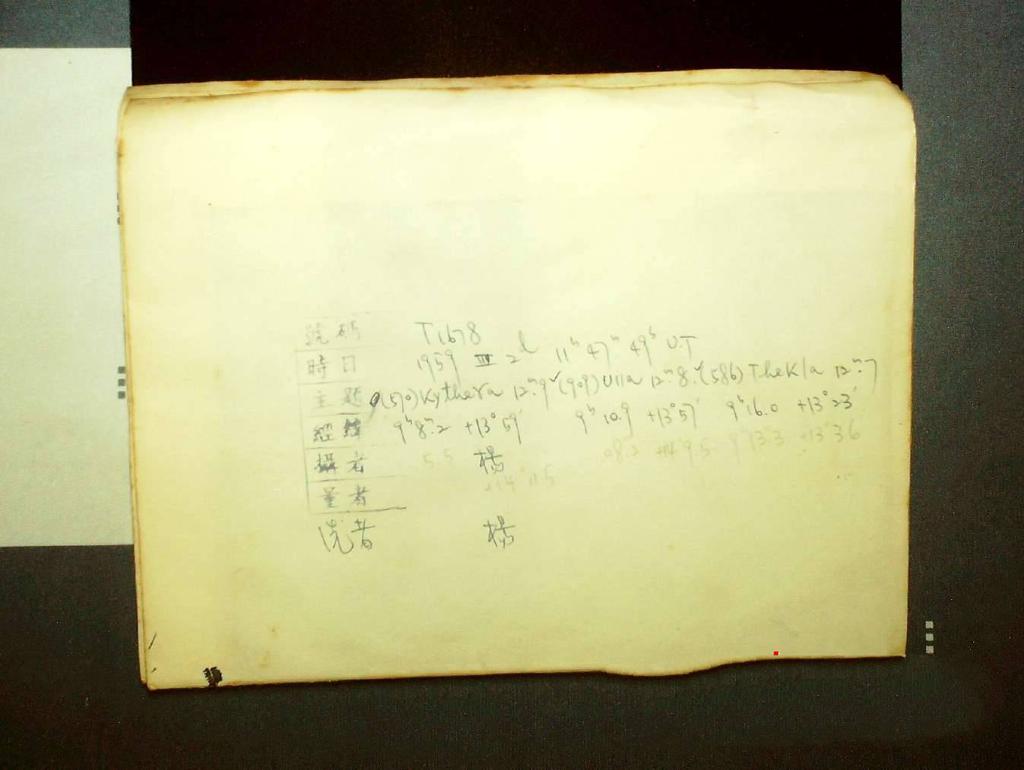 號碼 T1678
時日 1959 III 2d 11h 47m 49s U.T
主題 (570) Kythera 12m.9 (909) Ulla 12m.8 (586) Thekla 12m.7
經緯 9h 8m.2 +13° 59′ 9h 10.9 +13° 57′ 9h 16.0 +13° 23′
攝者 5.5 楊 08.2 +14 9.5 9 13.3 +13 36
量者
洗者 楊